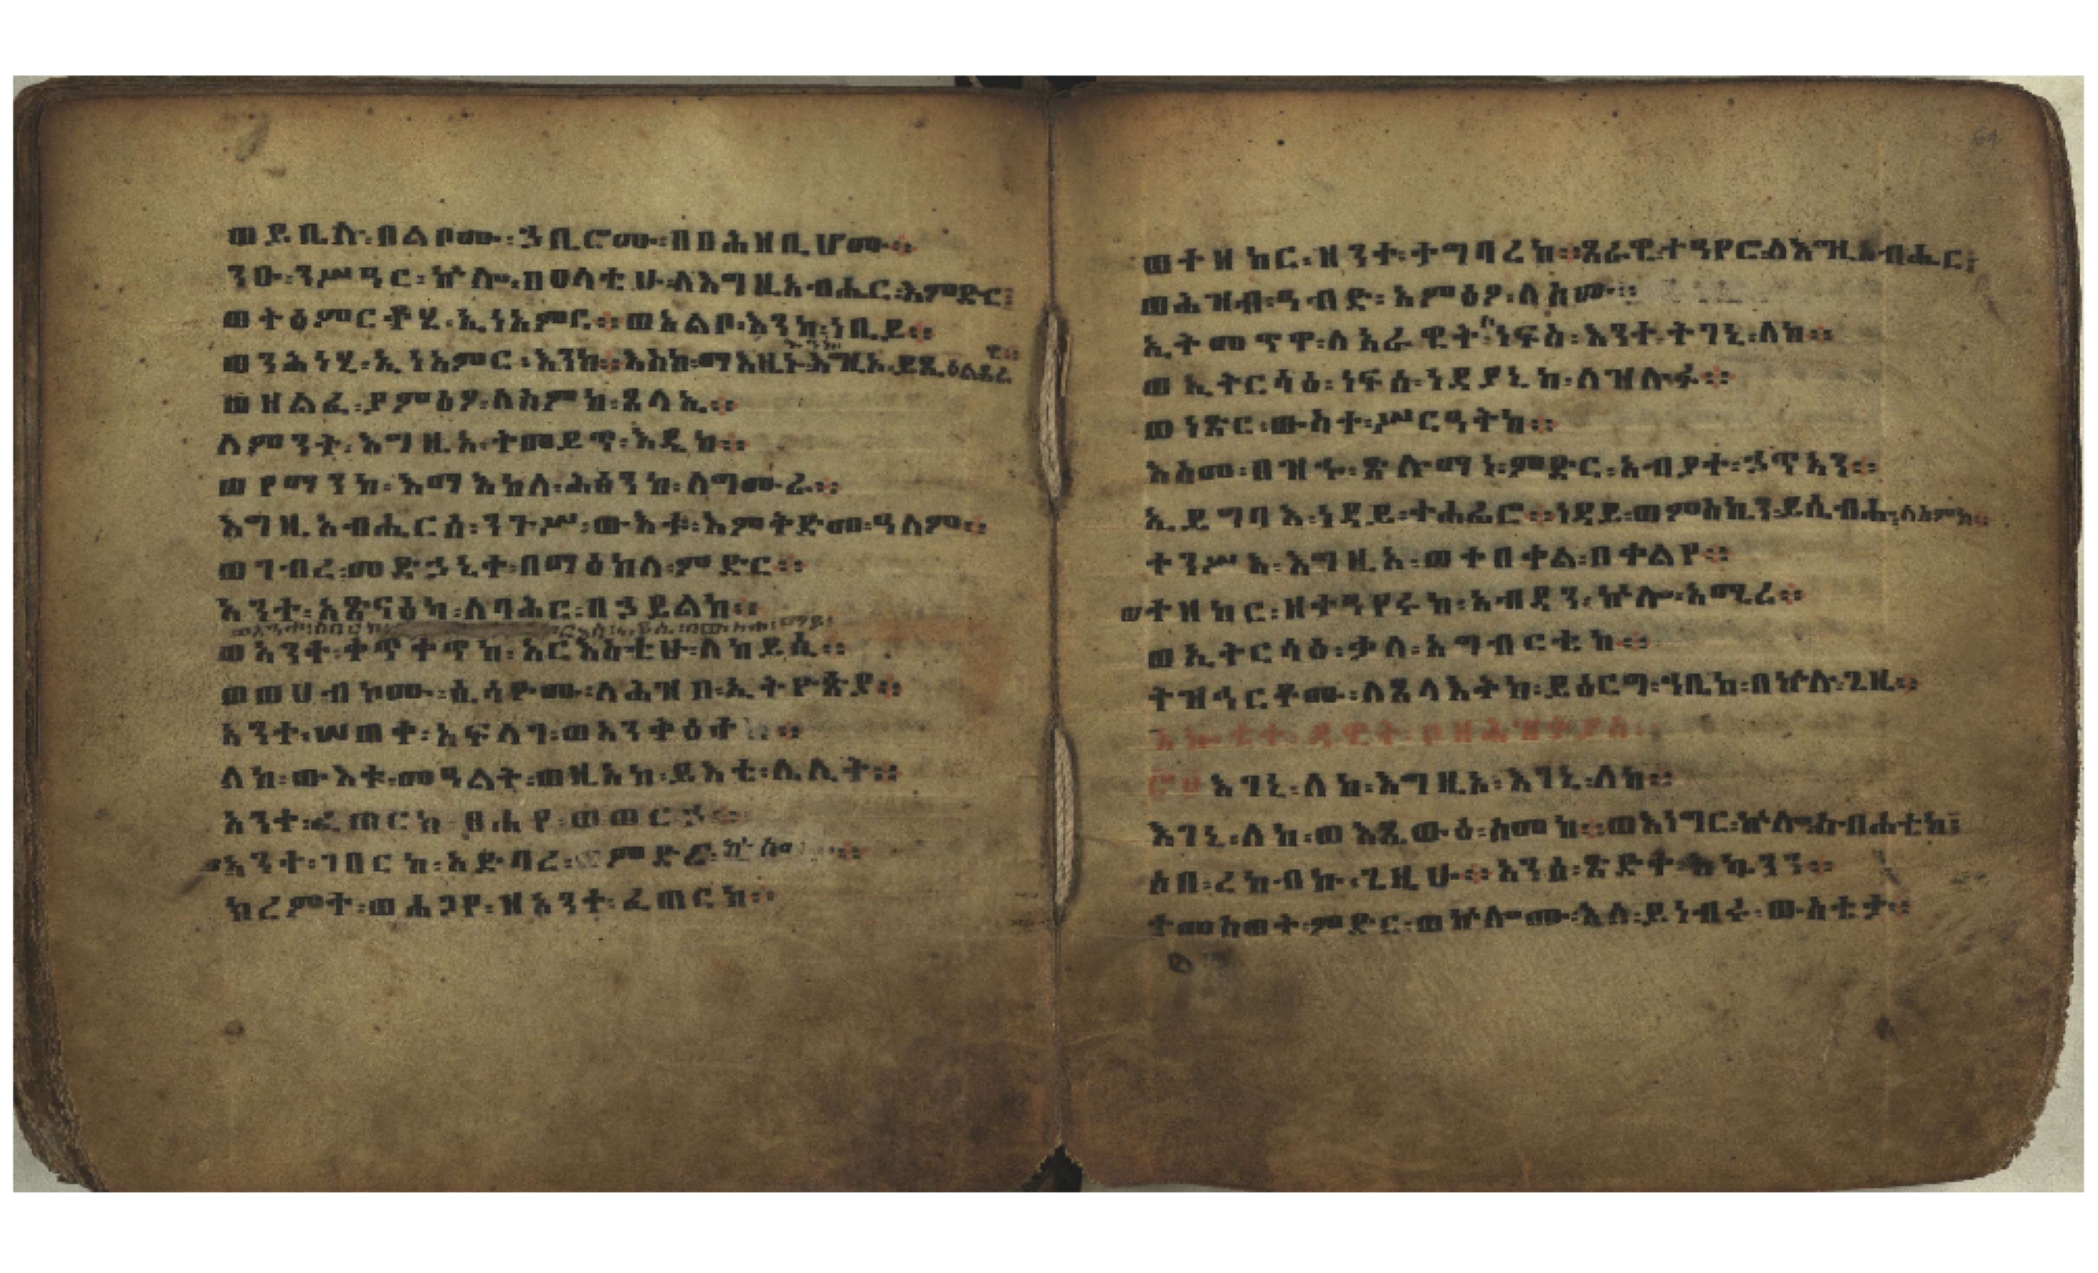 ወይቤሉ፡በልቦሙ፡ኃቢሮሙ፡በበሕዝቢሆሙ፡፡
ንዑ፡ንሥዓር፡ኵሎ፡በዐላቲሁ፡ለእግዚአብሔር፡እምድር፤
ወትዕምርቶሂ፡ኢነአምር፡፡ወአልቦ፡እንከ፡ነቢይ፡፡
ወንሕነሂ፡ኢነአምር፡እንከ፡፡እስከ፡ማእዜኑ፡እግዚኦ፡ይጼዕል፡ፀረ
ወዘልፈ፡ያምዕዖ፡ለስምከ፡ጸላኢ፡፡
ለምንት፡እግዚኦ፡ትመይጥ፡እዴከ፡፡
ወየማንከ፡እማእከለ፡ሕፅንከ፡ለግሙራ፡፡
እግዚአብሔርሰ፡ንጉሥ፡ውእቱ፡እምቅድመ፡ዓለም፡፡
ወገብረ፡መድኃኒተ፡በማዕከለ፡ምድር፡፡
አንተ፡አጽናዕካ፡ለባሕር፡በኃይልከ፡፡
ወአንተ፡ቀጥቀጥከ፡አርእስቲሁ፡ለከይሲ፡፡
ወወሀብኮሙ፡ሲሳዮሙ፡ለሕዝበ፡ኢትዮጵያ፡፡
አንተ፡ሠጠቀ፡አፍላገ፡ወአንቀዕተ፡፡
ለከ፡ውእቱ፡መዓልት፡ወዚአከ፡ይእቲ፡ሌሊት፡፡
አንተ፡ፈጠርከ፡ፀሐየ፡ወወርኃ፡፡
ወአንተ፡ገበርከ፡አድባረ፡ምድር፡ኵሎ፡፡
ክረምተ፡ወሐጋየ፡ዝአንተ፡ፈጠርከ፡፡
ወተዘከር፡ዝንተ፡ተግባረከ፡፡ጸራዊ፡ተዓየሮ፡ለእግዚአብሔር፤
ወሕዝብ፡ዓብድ፡አምዕዖ፡ለስሙ፡፡
ኢትመጥዋ፡ለአራዊት፡ነፍሰ፡እንተ፡ትገኒ፡ለከ፡፡
ወኢትርሳዕ፡ነፍሰ፡ነዳያኒከ፡ለዝሉፉ፡፡
ወነጽር፡ውስተ፡ሥርዓትከ፡፡
እስመ፡በዝኁ፡ጽሉማነ፡ምድር፡አብያተ፡ኃጥአን፡፡
ኢይግባእ፡ነዳይ፡ተሐፊሮ፡፡ነዳይ፡ወምስኪን፡ይሴብሑ፡ለስምከ፡፡
ተንሥእ፡እግዚኦ፡ወተበቀል፡በቀልየ፡፡
ወተዘከር፡ዘተዓየሩከ፡አብዳን፡ኵሎ፡አሚረ፡፡
ወኢትርሳዕ፡ቃለ፡አግብርቲከ፡፡
ትዝኅርቶሙ፡ለጸላእትከ፡ይዕርግ፡ኀቤከ፡በኵሉ፡ጊዜ፡፡
እገኒ፡ለከ፡እግዚኦ፡እገኒ፡ለከ፡፡
እገኒ፡ለከ፡ወእጼውዕ፡ስመከ፡፡ወእነግር፡ኵሎ፡ስብሐቲከ፤
ሶበ፡ረከብኩ፡ጊዜሁ፡፡አንሰ፡ጽድቀ፡እኴንን፡፡
ተመስወት፡ምድር፡ወኵሎሙ፡እለ፡ይነብሩ፡ውስቴታ፡፡